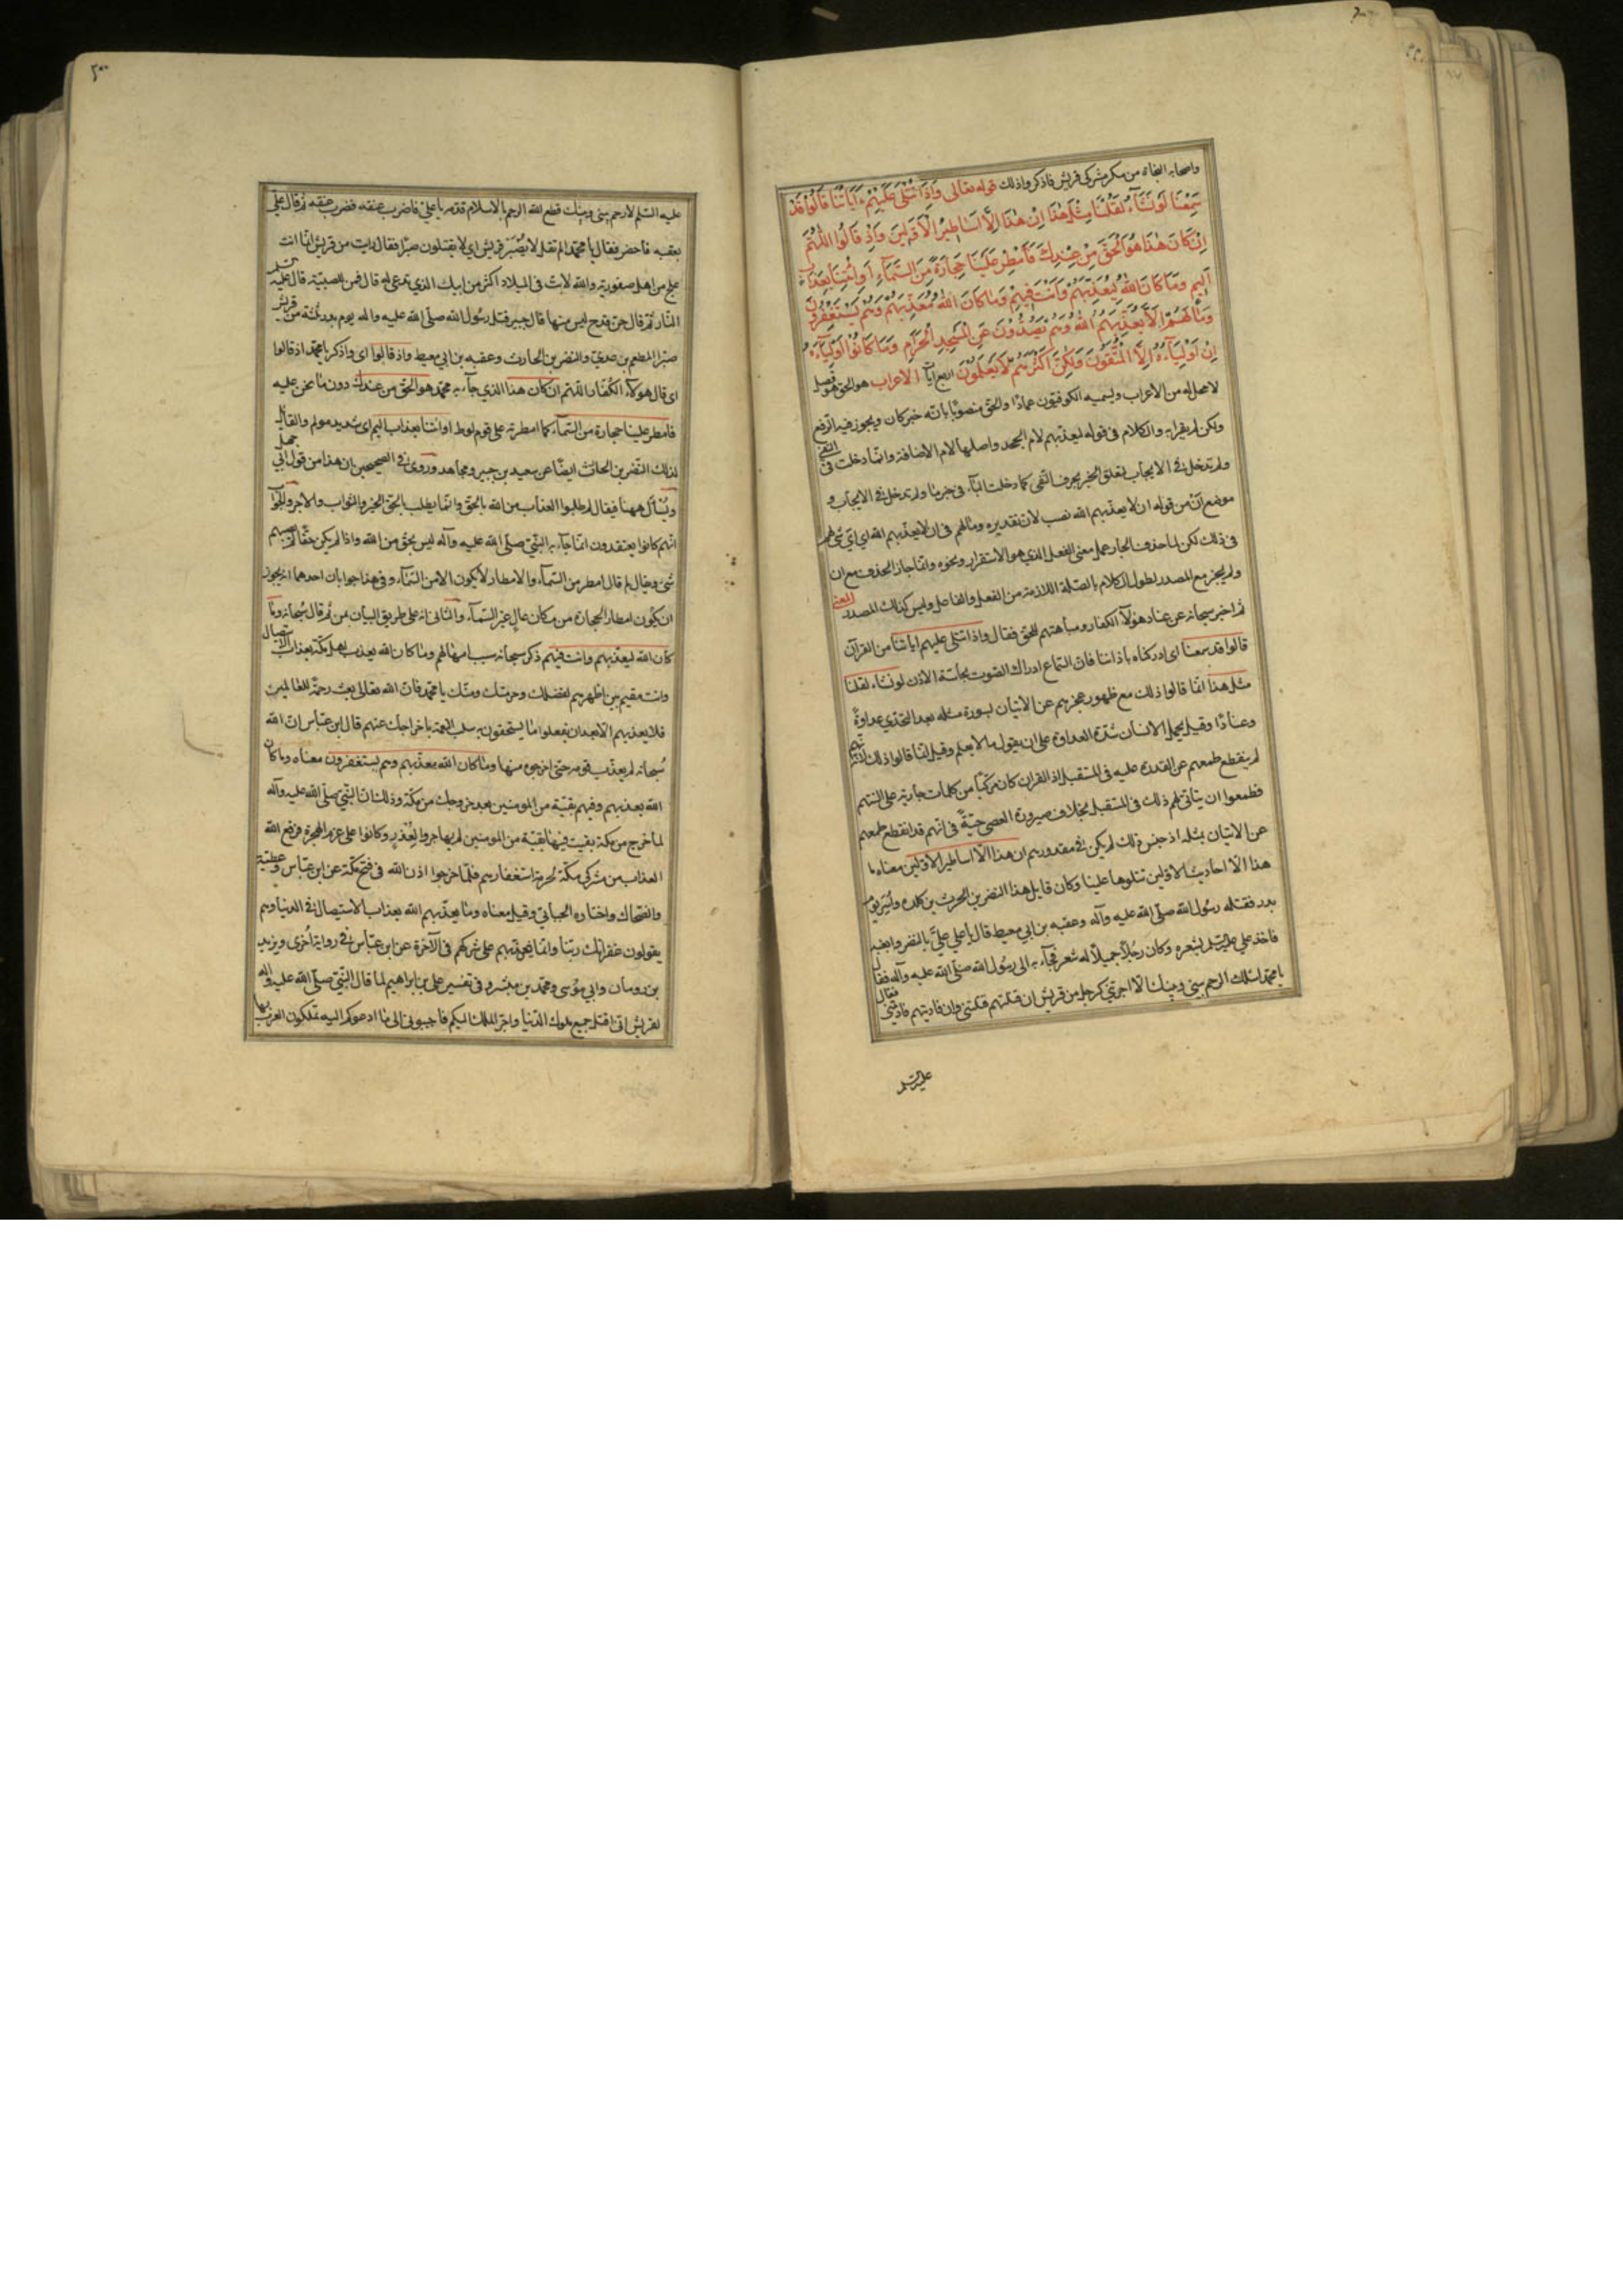 واصحابه النجاة من مكر مشركى قريش فاذكر واذلك قوله تعالى وَاِذَا تُتْلَى عَلَيْهِمْ ءَايَاتُنَا قَالُوا قَدْ
سَمِعْنَا لَوْ نَشَآءُ لَقُلْنَا مِثْلَ هٰذَا اِنْ هٰذَا اِلَّا اَسَاطِيرُ الْاَوَّلِينَ وَاِذْ قَالُوا اللّٰهُمَّ
اِنْ كَانَ هٰذَا هُوَ الْحَقَّ مِنْ عِنْدِكَ فَاَمْطِرْ عَلَيْنَا حِجَارَةً مِنَ السَّمَآءِ اَوِ ائْتِنَا بِعَذَابٍ
اَلِيمٍ وَمَا كَانَ اللهُ لِيُعَذِّبَهُمْ وَاَنْتَ فِيهِمْ وَمَا كَانَ اللهُ مُعَذِّبَهُمْ وَهُمْ يَسْتَغْفِرُونَ
وَمَا لَهُمْ اَلَّا يُعَذِّبَهُمُ اللهُ وَهُمْ يَصُدُّونَ عَنِ الْمَسْجِدِ الْحَرَامِ وَمَا كَانُوا اَوْلِيَآءَهُ
اِنْ اَوْلِيَآءُهُ اِلَّا الْمُتَّقُونَ وَلٰكِنَّ اَكْثَرَهُمْ لَا يَعْلَمُونَ اربع ايات الاعراب هو الحق هو فصل
لا محل له من الاعراب ويسميه الكوفيون عمادًا والحق منصوبًا بانه خبر كان ويجوز فيه الرفع
ولكن لم يقرا به والكلام فى قوله ليعذبهم لام الجحد واصلها لام الاضافة وانما دخلت فى النفى
ولم تدخل فى الايجاب لتعلق الخبر بحرف النفى كما دخلت الباء فى خبر ما ولم تدخل فى الايجاب و
موضع اَنْ من قوله ان لا يعذبهم الله نصب لان تقديره وما لهم فى ان لا يعذبهم الله اى اىّ شى لهم
فى ذلك لكن لما حذف الجار عمل معنى الفعل الذى هو الاستقرار ونحوه وانما جاز الحذف مع ان
ولم يجز مع المصدر لطول الكلام بالصلة اللازمة من الفعل والفاعل وليس كذلك المصدر المعنى
ثم اخبر سبحانه عن عناد هؤلآ الكفار ومباهتهم للحق فقال واذا تتلى عليهم اياتنا من القرآن
قالوا قد سمعنا اى ادركناه باذاننا فان السماع ادراك الصوت بحاسة الاذن لو نشاء لقلنا
مثل هذا انما قالوا ذلك مع ظهور عجزهم عن الاتيان بسورة مثله بعد التحدى عداوةً
وعنادًا وقيل يحمل الانسان شدة العداوة على ان يقول ما لا يعلم وقيل انما قالوا ذلك لانهم
لم ينقطع طمعهم عن القدرة عليه فى المستقبل اذ القران كان مركبًا من كلمات جارية على السنتهم
فطمعوا ان يتاتى لهم ذلك فى المستقبل بخلاف صيرورة العصى حيّةً فى انهم قد انقطع طمعهم
عن الاتيان بمثله اذ جنس ذلك لم يكن فى مقدورهم ان هذا الا اساطير الاولين معناه ما
هذا الا احاديث الاولين تتلوها علينا وكان قايل هذا النضر بن الحرث بن كلدة واُسِرَ يوم
بدر فقتله رسول الله صلى الله عليه وآله وعقبه بن ابى معيط قال يا على علىّ بالنضر وابغيه
فاخذ على عليه السلم بشعره وكان رجلًا جميلًا له شعر فجآء به الى رسول الله صلى الله عليه وآله فقال
يا محمد اسئلك الرحم بينى وبينك الا اجريتنى كرجل من قريش ان قتلتهم قتلتنى وان فاديتهم فاديتنى فقال
عليه السلم
٢٠٠
عليه السلم لا رحم بينى وبينك قطع الله الرحم بالاسلام قدّمه يا على فاضرب عنقه فضرب عنقه ثم قال علىّ
بعقبه فاحضر فقال يا محمد الم تقل لا تُصْبَر قريش اى لا يقتلون صبرًا فقال وانت من قريش انما انت
علج من اهل صفورية والله لانت فى الميلاد اكثر من ابيك الذى تدعى له قال فمن للصبيّة قال عليه السلم
النار ثم قال حنّ قدح ليس منها قال جبير قتل رسول الله صلى الله عليه واله يوم بدر ثلثة من قريش
صبرًا المطعم بن عدىّ والنضر بن الحارث وعقبه بن ابى معيط واذ قالوا اى واذكر يا محمد اذ قالوا
اى قال هؤلآء الكفار اللهم ان كان هذا الذى جآء به محمد هو الحق من عندك دون ما نحن عليه
فامطر علينا حجارة من السمآء كما امطرته على قوم لوط او ائتنا بعذاب اليم اى شديد مولم والقايل
لذلك النضر بن الحارث ايضًا عن سعيد بن جبير ومجاهد وروى فى الصحيحين ان هذا من قول ابى جهل
ويُسْأل ههنا فيقال لم طلبوا العذاب من الله بالحق وانما يطلب بالحق الخير والثواب والاجر والجواب
انهم كانوا يعتقدون ان ما جآء به النبى صلى الله عليه وآله ليس بحق من الله واذا لم يكن حقًا لم يصبهم
شىء ويقال لم قال امطر من السمآء والامطار لا يكون الا من السمآء وفى هذا جوابان احدهما انه يجوز
ان يكون امطار الحجارة من مكان عالٍ غير السمآء والثانى انه على طريق البيان بمن ثم قال سبحانه وما
كان الله ليعذبهم وانت فيهم ذكر سبحانه سبب امهالهم وما كان الله يعذب اهل مكة بعذاب الاستيصال
وانت مقيم بين اظهرهم لفضلك وحرمتك ومنّك يا محمد فان الله تعالى بعثك رحمةً للعالمين
فلا يعذبهم الا بعد ان يفعلوا ما يستحقون به سلب النعمة باخراجك عنهم قال ابن عباس ان الله
سُبحانه لم يعذب قومه حتى اخرجوه منها وما كان الله معذبهم وهم يستغفرون معناه وما كان
الله يعذبهم وفيهم بقيّة من المومنين بعد خروجك من مكة وذلك ان النبى صلى الله عليه وآله
لما خرج من مكة بقيت فيها بقيّة من المومنين لم يهاجروا لِعُذْرٍ وكانوا على عزم الهجرة فرفع الله
العذاب من مشركى مكة لحرمة استغفارهم فلما خرجوا اذن الله فى فتح مكة عن ابن عباس وعطيّة
والضحاك واختاره الجبائى وقيل معناه وما يعذبهم الله بعذاب الاستيصال فى الدنيا وهم
يقولون غفرانك ربّنا وانما يعذبهم على شركهم فى الآخرة عن ابن عباس فى رواية اُخرى ويزيد
بن رومان وابى مُوسى ومحمد بن مبشر وفى تفسير على بن ابراهيم لما قال النبى صلى الله عليه واله
لقريش انى اقتل جميع ملوك الدنيا واجر الملك اليكم فاجيبونى الى ما ادعوكم اليه تملكون العرب بها